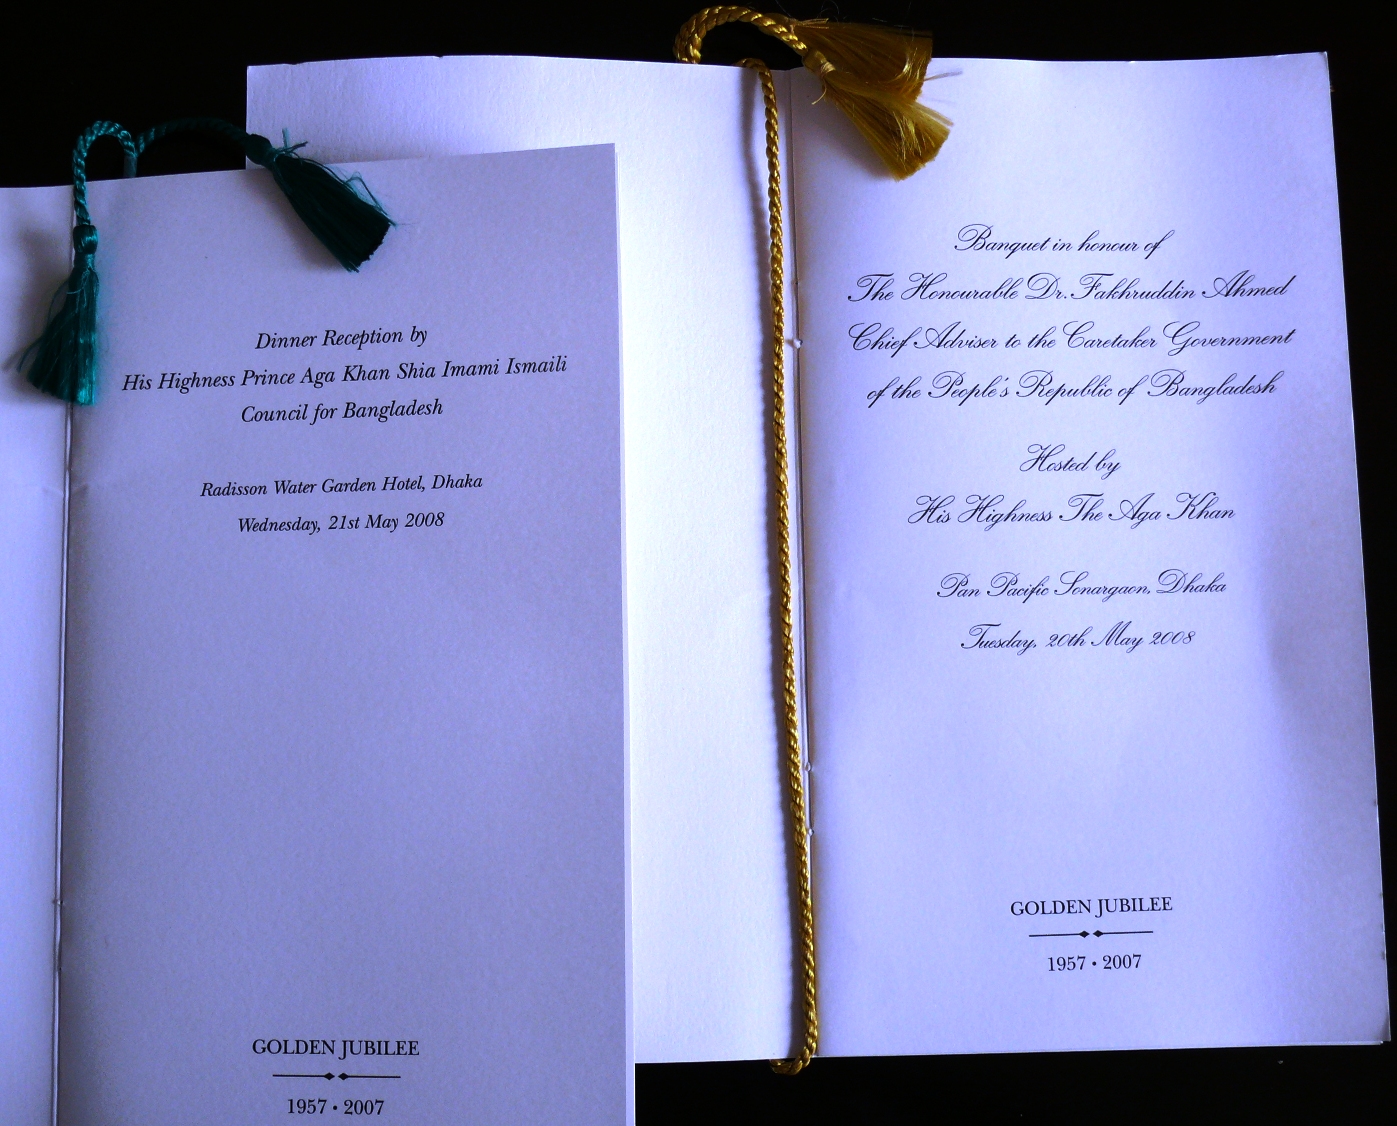 Dinner Reception by
His Highness Prince Aga Khan Shia Imami Ismaili
Council for Bangladesh
Radisson Water Garden Hotel, Dhaka
Wednesday, 21st May 2008
GOLDEN JUBILEE
1957 • 2007
Banquet in honour of
The Honourable Dr. Fakhruddin Ahmed
Chief Adviser to the Caretaker Government
of the People's Republic of Bangladesh
Hosted by
His Highness The Aga Khan
Pan Pacific Sonargaon, Dhaka
Tuesday, 20th May 2008
GOLDEN JUBILEE
1957 • 2007